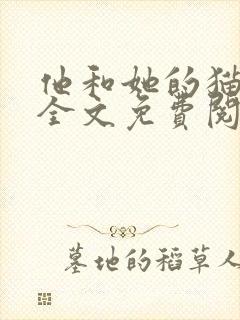 他和她的猫
全文免費閱
墓地的稻草人